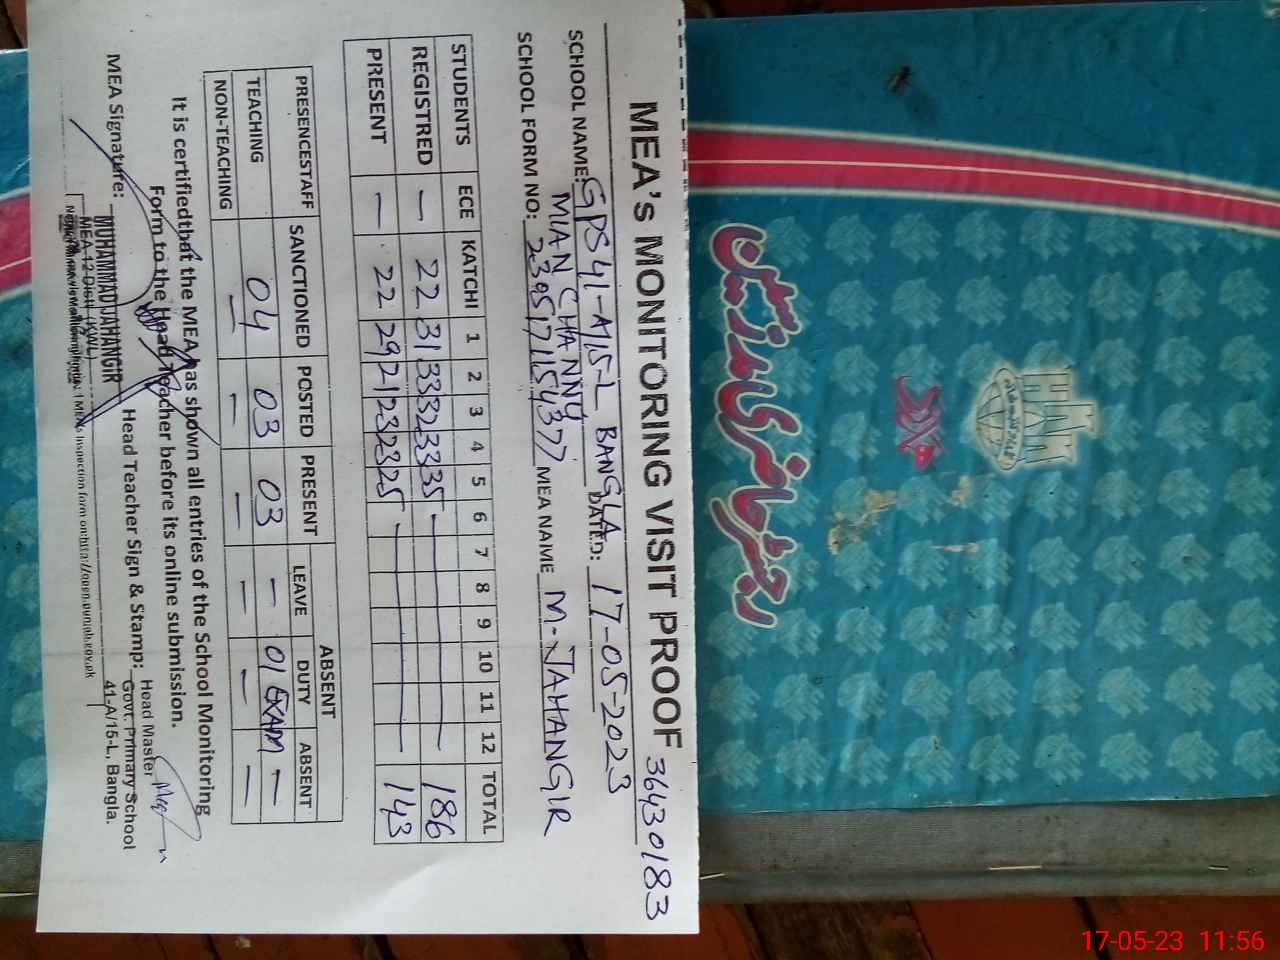 MEA's MONITORING VISIT PROOF 36430183
SCHOOL NAME: GPS 41-A/15-L BANGLA DATED: 17-05-2023
MIAN CHANNU
SCHOOL FORM NO: 2305171154377 MEA NAME M-JAHANGIR
STUDENTS ECE KATCHI 1 2 3 4 5 6 7 8 9 10 11 12 TOTAL
REGISTRED — 22 31 33 32 33 35 — 186
PRESENT — 22 29 21 23 23 25 — 143
PRESENCESTAFF SANCTIONED POSTED PRESENT ABSENT
LEAVE DUTY ABSENT
TEACHING 04 03 03 — 01 EXAM —
NON-TEACHING — — — — — —
It is certifiedthat the MEA has shown all entries of the School Monitoring
Form to the Head Teacher before its online submission.
MEA Signature: MUHAMMAD JAHANGIR
MEA-12 Distt (KWL)
Head Teacher Sign & Stamp: Head Master
Govt. Primary School
41-A/15-L, Bangla.
رجسٹر حاضری اساتذہ
17-05-23 11:56